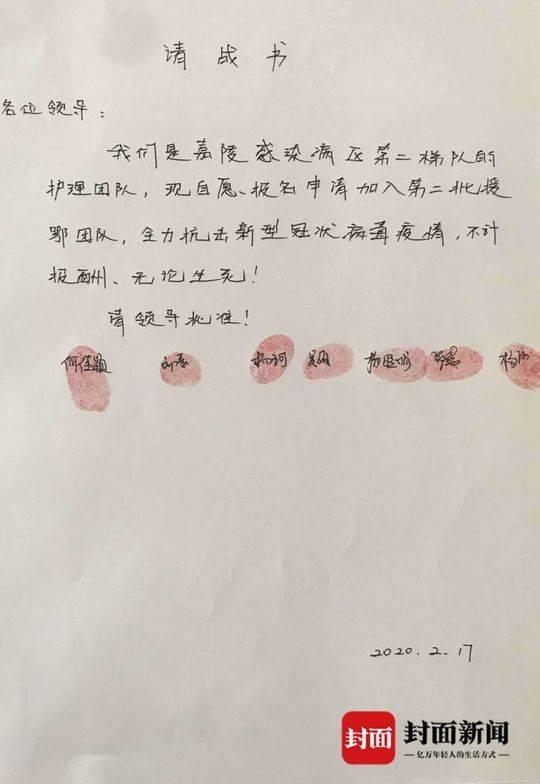 请战书
各位领导：
我们是嘉陵感染病区第二梯队的
护理团队，现自愿、报名申请加入第二批援
鄂团队，全力抗击新型冠状病毒疫情，不计
报酬、无论生死！
请领导批准！
何佳颖
2020.2.17
封面 封面新闻
亿万年轻人的生活方式